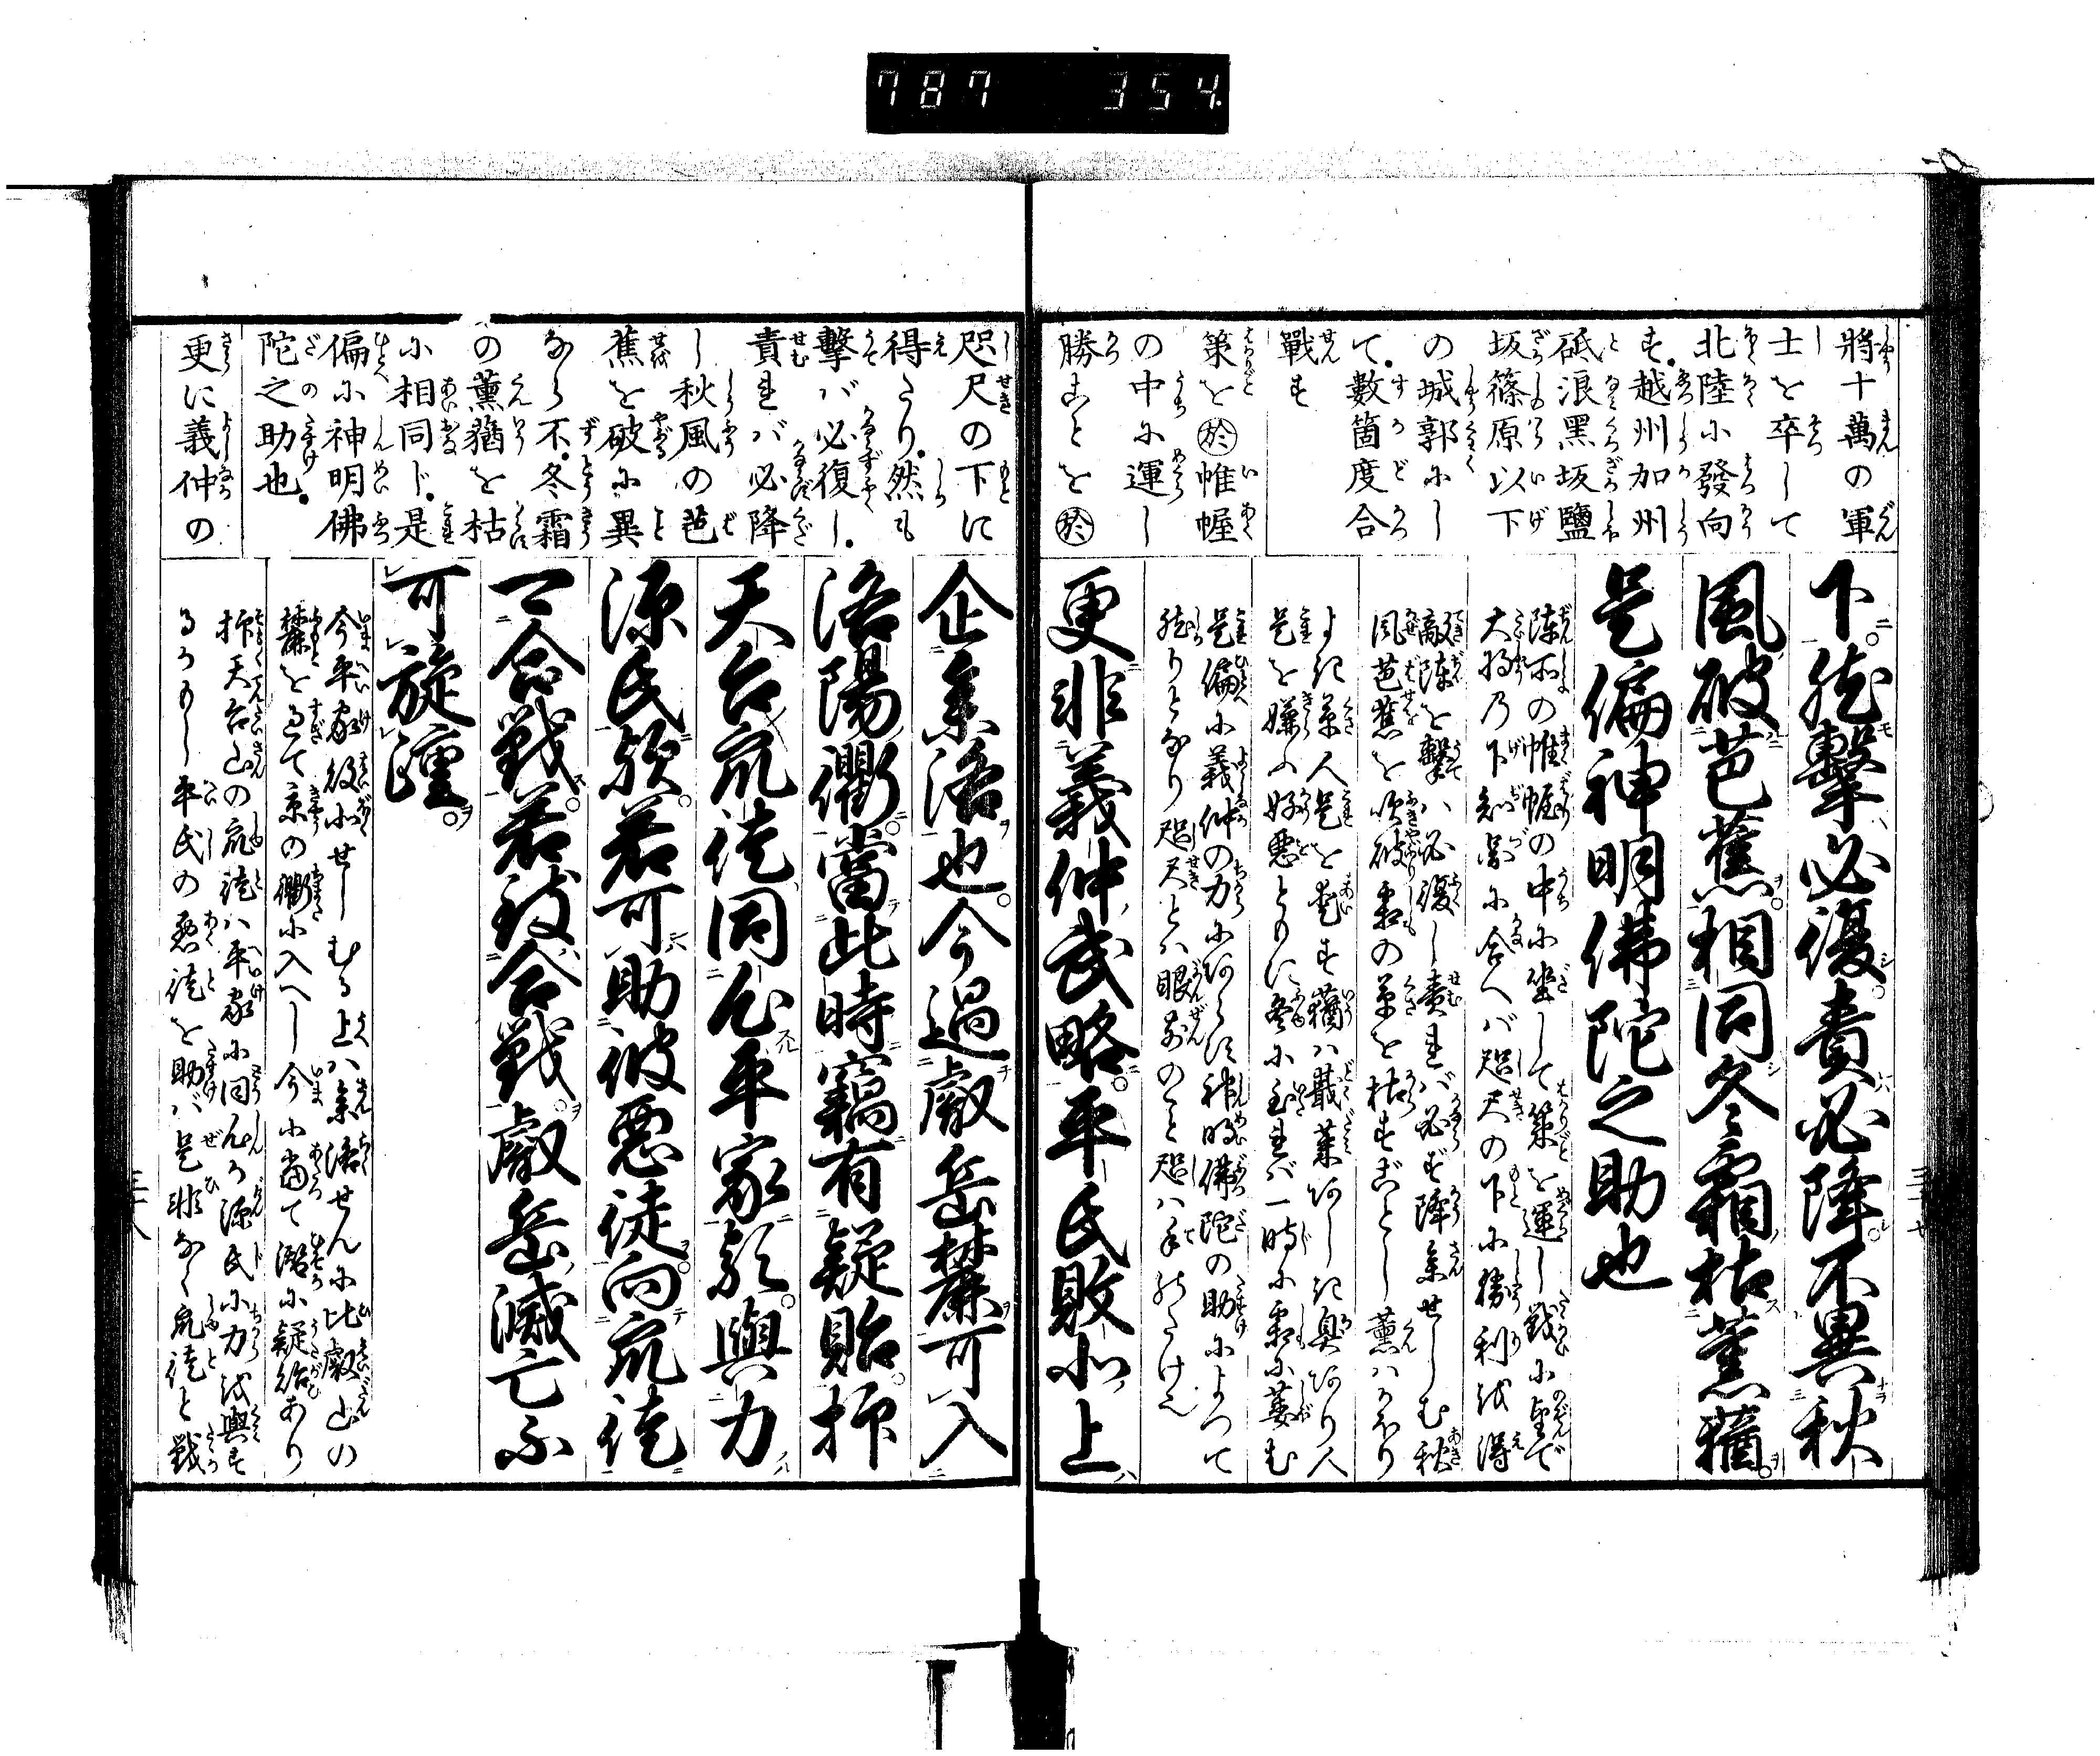 787 354.
將十萬の軍
士を卒して
北陸に發向
す。越州加州
砥浪黒坂鹽
坂篠原以下
の城郭にし
て。數箇度合
戰す
策を㊀於帷幄
の中に運し
勝ことを㊀於
下。然擊必復責必降。不異秋
風破芭蕉。相同冬霜枯薫蕕。
是偏神明佛陀之助也
陳所の帷幄の中に坐して策を運し戰に望で
大將の下知圖に合へバ咫尺の下に勝利を得
敵陳を擊ハ必復し責れバ必ず降參せしむ秋
風芭蕉を吹破霜の草を枯すごとし薫ハかほり
よき草人是を愛す蕕ハ
是を嫌ふ好惡ともに冬に至れバ一時に霜に萎む
是偏に義仲の力にあらず神明佛陀の助によつて
然りとなり咫尺とハ眼前のこと咫ハ
更非義仲武略。平氏敗北上
咫尺の下に
得たり。然も
擊バ必復し。
責れバ必降
し秋風の芭
蕉を破に異
なら不。冬霜
の薫蕕を枯
に相同じ。是
偏に神明佛
陀之助也。
更に義仲の
企參洛也。今過叡岳麓可入
洛陽衢。當此時竊有疑貽。抑
天台衆徒同心平家歟。與力
源氏歟。若可助彼惡徒向衆徒
可合戰。若致合戰。叡岳滅亡不
可旋踵。
今平家敗北せしむる上ハ參洛せんに比叡山の
麓を過て京の衢に入へし今に當て潛に疑貽あり
抑天台山の衆徒ハ平家に同心か源氏に力を與す
るかもし平氏の惡徒を助バ是非なく衆徒と戰